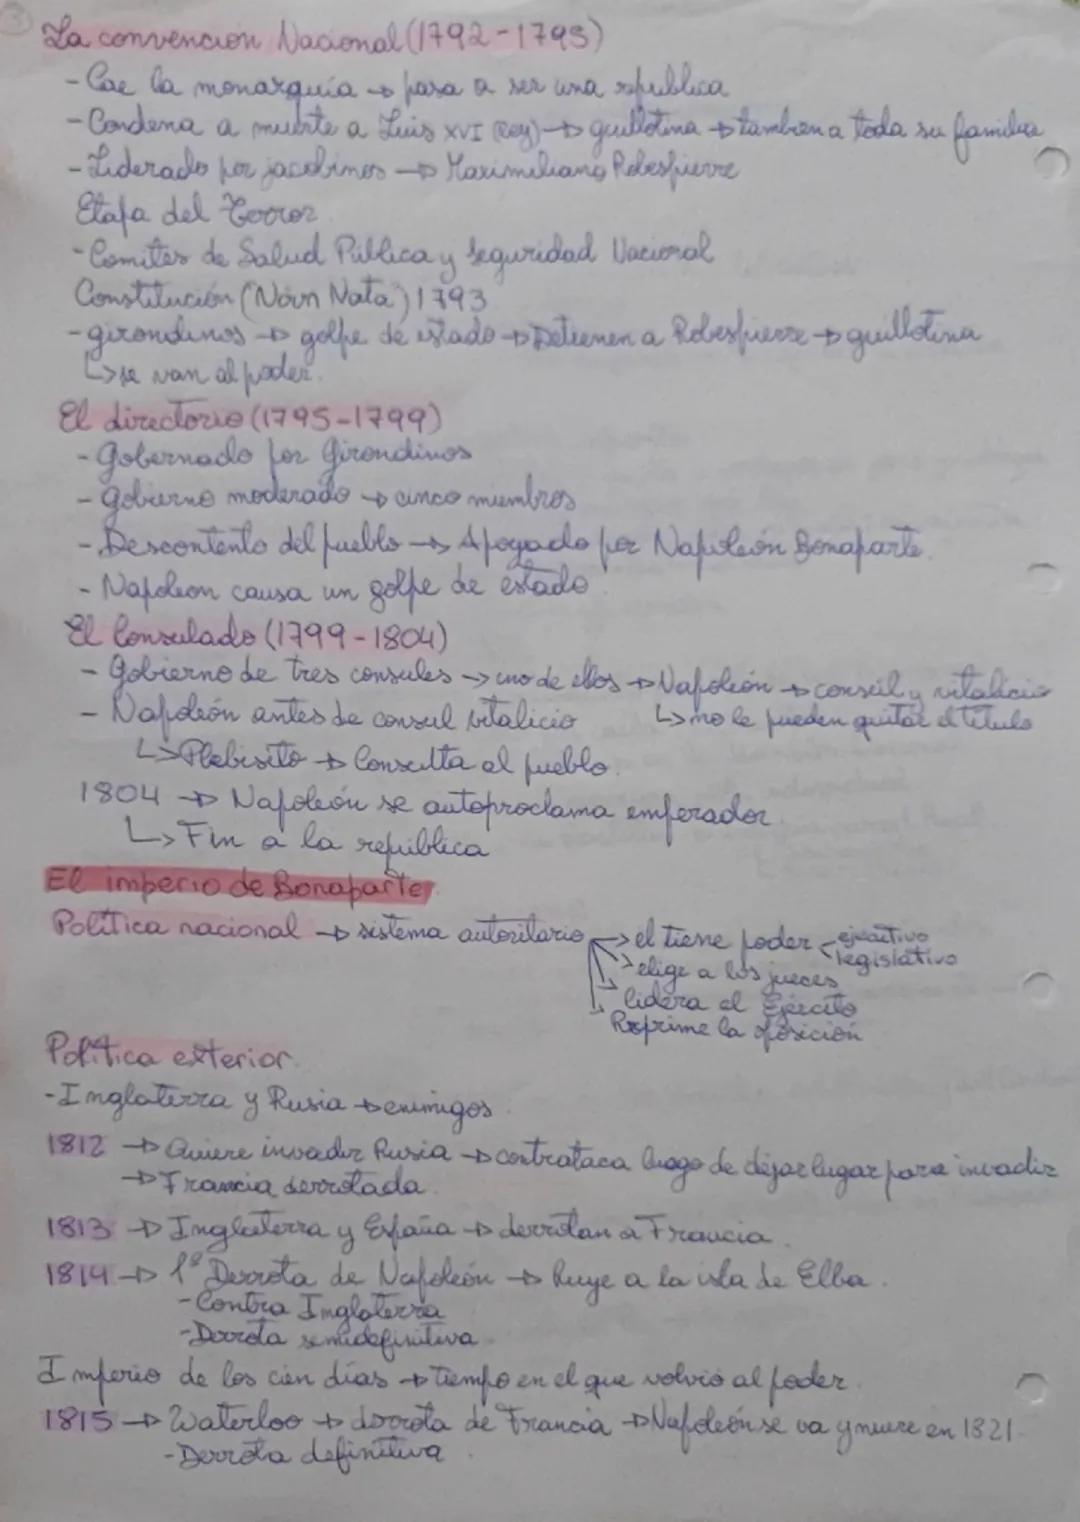 3
La convención Nacional (1792-1795)
- Cae la monarquía → pasa a ser una republica
- Condena a muerte a Luis XVI (Rey) → guillotina → tambien a toda su familia
- Liderado por jacobinos → Maximiliano Robespierre
Etapa del Terror
- Comites de Salud Pública y Seguridad Nacional
Constitución ("Non Nata") 1793
- girondinos → golpe de estado → Detienen a Robespierre → guillotina
↳ se van al poder.
El directorio (1795-1799)
- Gobernado por Girondinos
- Gobierno moderado → cinco miembros
- Descontento del pueblo → Apoyado por Napoleón Bonaparte.
- Napoleon causa un golpe de estado
El Consulado (1799-1804)
- Gobierno de tres consules → uno de ellos → Napoleón → consul y vitalicio
- Napoleón antes de consul vitalicio ↳ no le pueden quitar el titulo
↳ Plebisito → Consulta al pueblo.
1804 → Napoleón se autoproclama emperador
↳ Fin a la república
El imperio de Bonaparte
Política nacional → sistema autoritario → el tiene poder ejecutivo
legislativo
→ elige a los jueces
→ lidera el Ejército
→ Reprime la oposición
Política exterior
- Inglaterra y Rusia → enemigos.
1812 → Quiere invadir Rusia → contrataca luego de dejar lugar para invadir
→ Francia derrotada.
1813 → Inglaterra y España → derrotan a Francia.
1814 → 1º Derrota de Napoleón → huye a la isla de Elba.
- Contra Inglaterra
- Derrota semidefinitiva
Imperio de los cien días → tiempo en el que volvió al poder.
1815 → Waterloo → derrota de Francia → Napoleón se va y muere en 1821.
- Derrota definitiva.